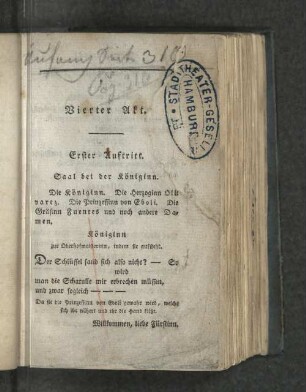 Anfang Seite 3
STADTTHEATER-GESELL
HAMBURG
Vierter Akt.
Erster Auftritt.
Saal bei der Königinn.
Die Königinn. Die Herzoginn Oli
varez. Die Prinzessinn von Eboli. Die
Gräfinn Fuentes und noch andere Da-
men.
Königinn
zur Oberhofmeisterinn, indem sie aufsteht.
Der Schlüssel fand sich also nicht? — So
wird
man die Schatulle mir erbrechen müssen,
und zwar sogleich — — —
Da sie die Prinzessinn von Eboli gewahr wird, welche
sich ihr nähert und ihr die Hand küßt.
Willkommen, liebe Fürstinn.